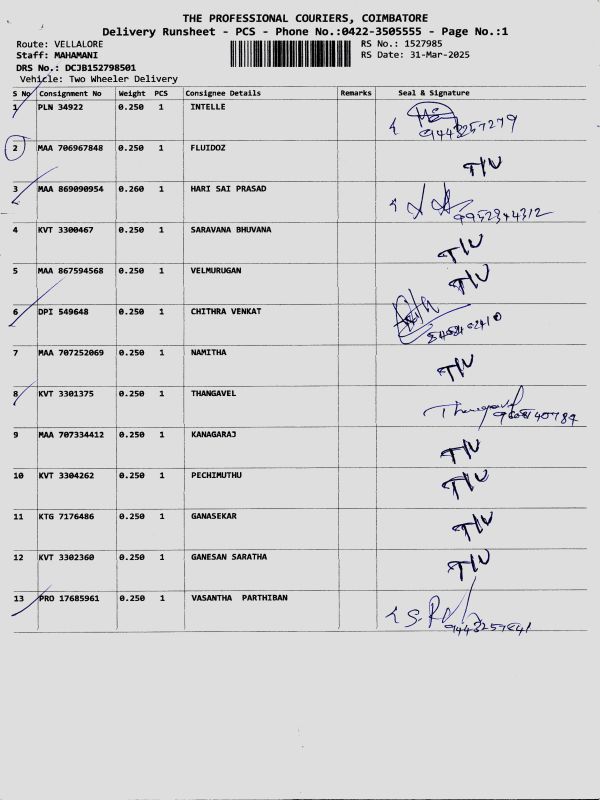 THE PROFESSIONAL COURIERS, COIMBATORE
Delivery Runsheet - PCS - Phone No.:0422-3505555 - Page No.:1
Route: VELLALORE RS No.: 1527985
Staff: MAHAMANI RS Date: 31-Mar-2025
DRS No.: DCJB152798501
Vehicle: Two Wheeler Delivery
S No Consignment No Weight PCS Consignee Details Remarks Seal & Signature
1 PLN 34922 0.250 1 INTELLE
9443257279
2 MAA 706967848 0.250 1 FLUIDOZ
T/U
3 MAA 869090954 0.260 1 HARI SAI PRASAD
9952344312
4 KVT 3300467 0.250 1 SARAVANA BHUVANA
T/U
5 MAA 867594568 0.250 1 VELMURUGAN
T/U
6 DPI 549648 0.250 1 CHITHRA VENKAT
7 MAA 707252069 0.250 1 NAMITHA
T/U
8 KVT 3301375 0.250 1 THANGAVEL
Thangavel
9 MAA 707334412 0.250 1 KANAGARAJ
T/U
10 KVT 3304262 0.250 1 PECHIMUTHU
T/U
11 KTG 7176486 0.250 1 GANASEKAR
T/U
12 KVT 3302360 0.250 1 GANESAN SARATHA
T/U
13 PRO 17685961 0.250 1 VASANTHA PARTHIBAN